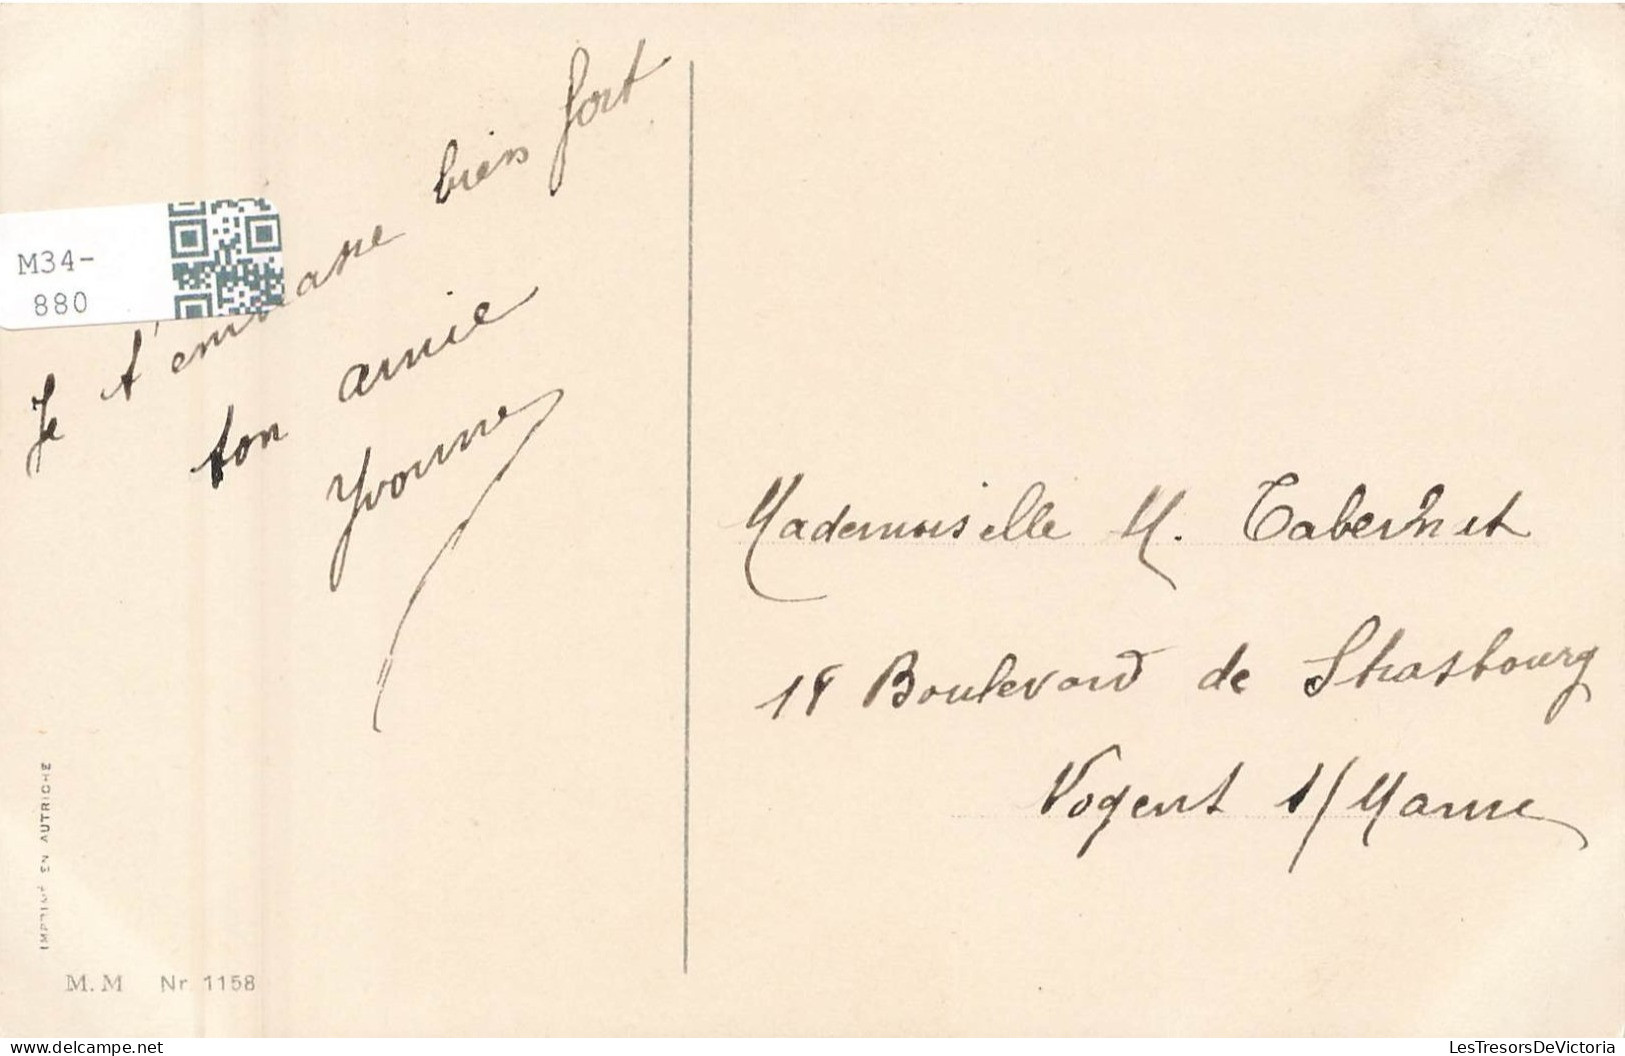 M34-
880
Je t'embrasse bien fort
ton amie
Yvonne
Mademoiselle M. Tabernet
18 Boulevard de Strasbourg
Nogent s/ Marne
IMPRIMÉ EN AUTRICHE
M. M Nr. 1158
LesTresorsDeVictoria
delcampe.net